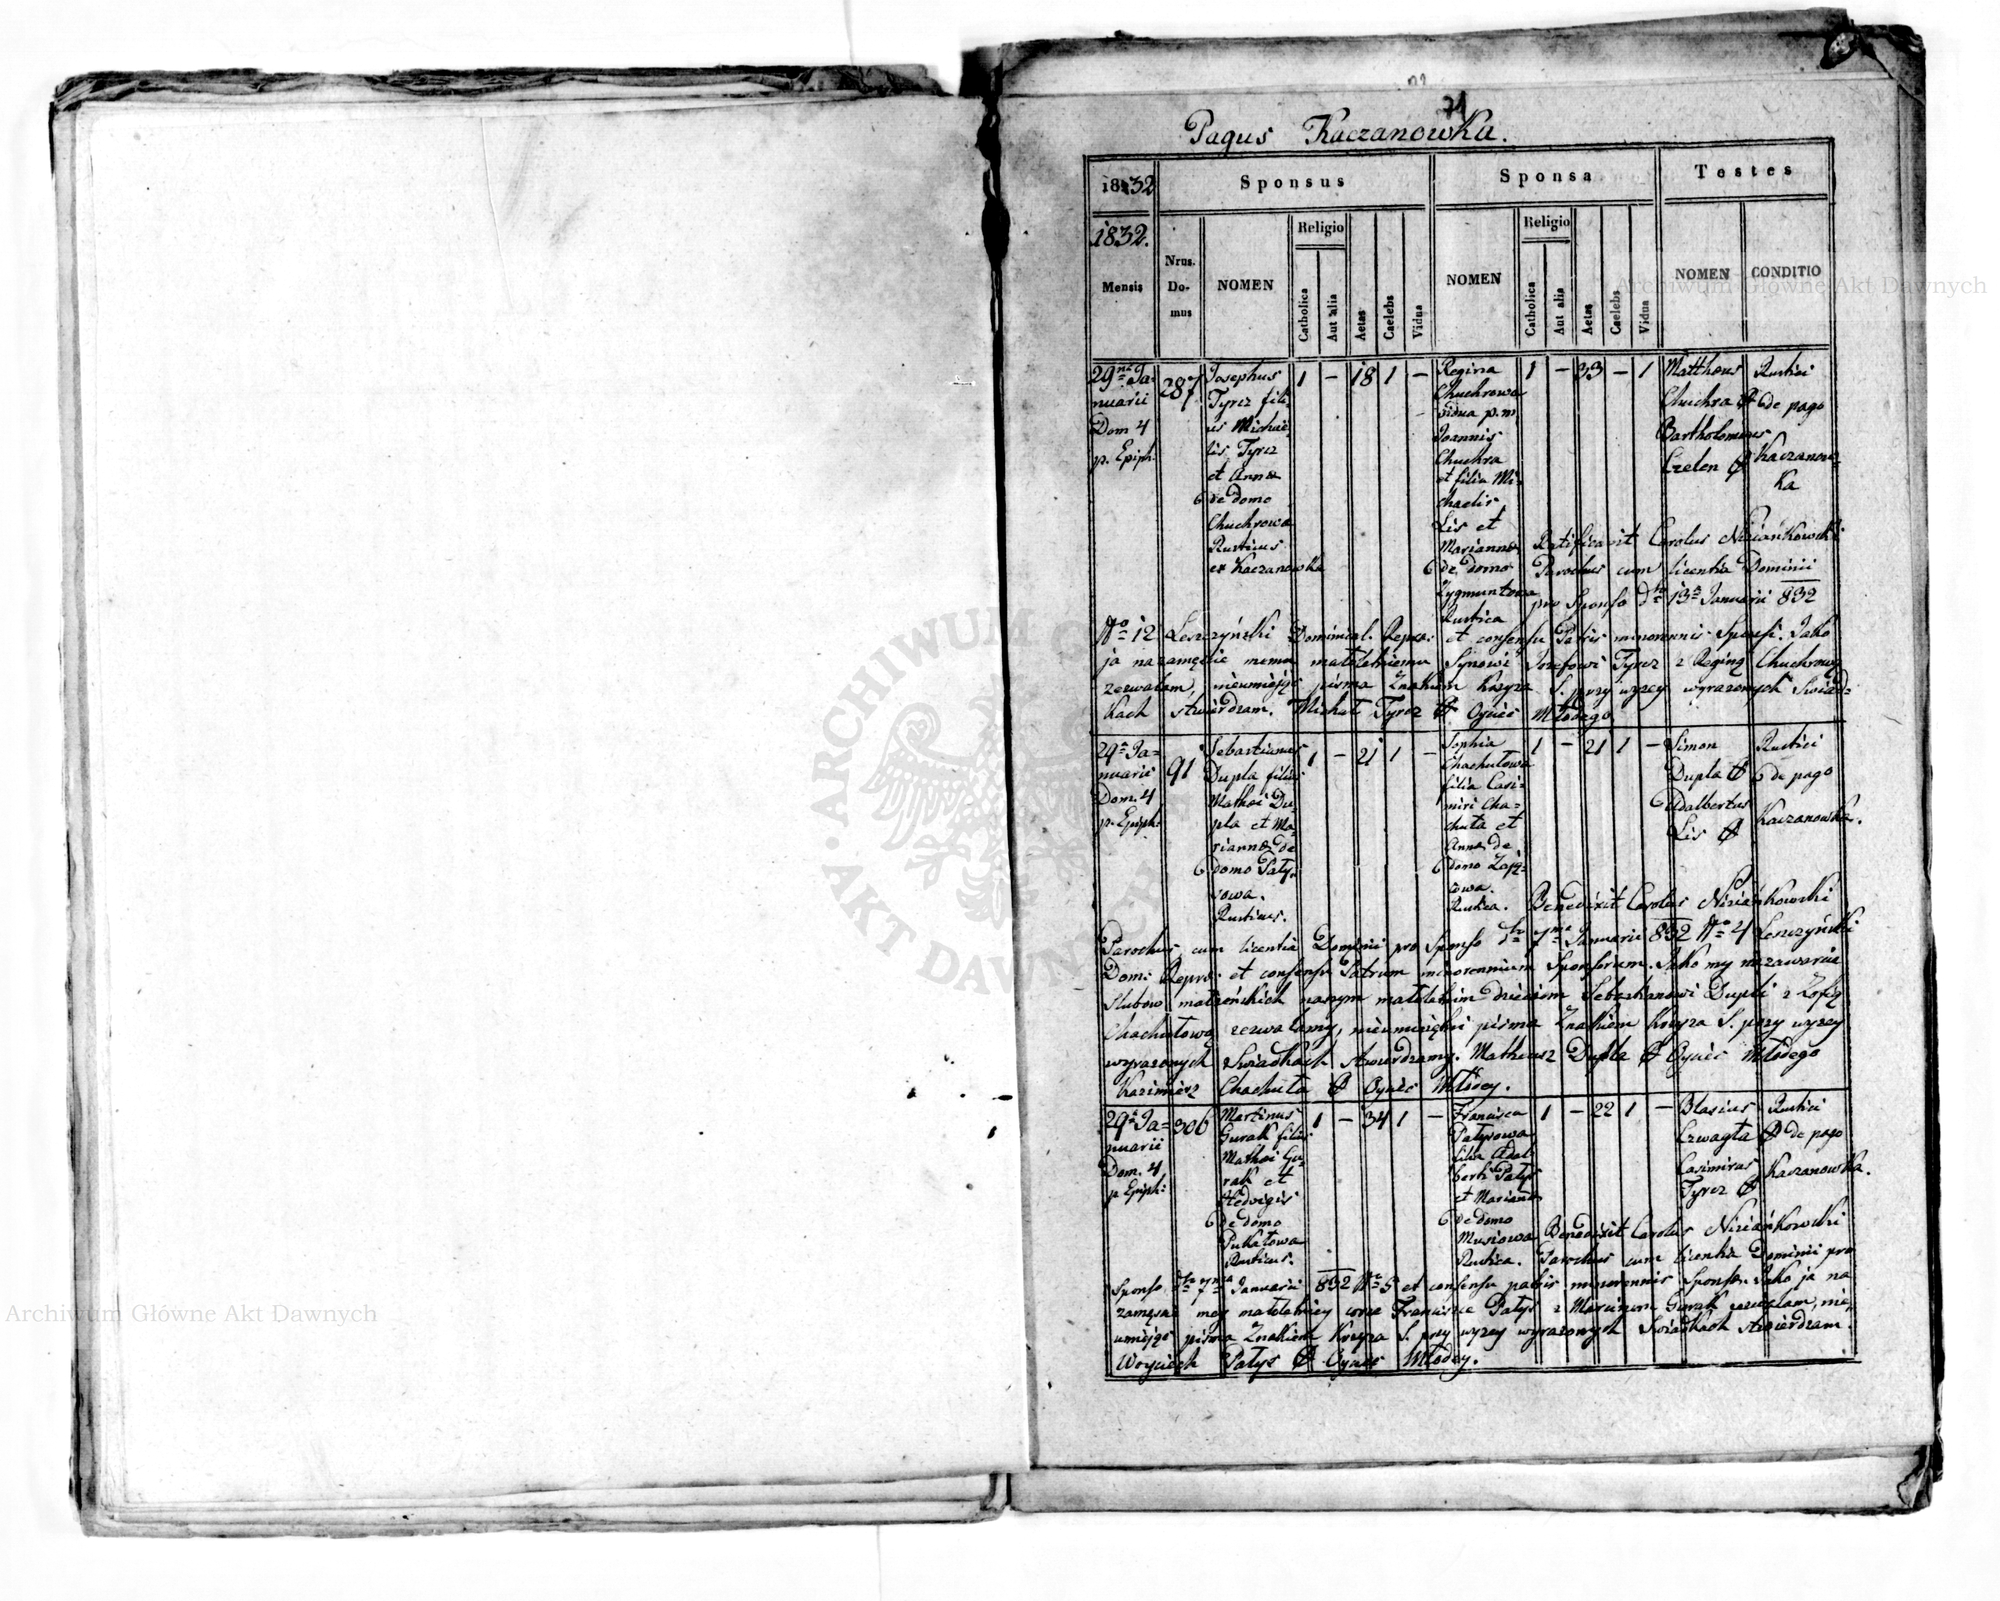 Pagus Kaczanowka.
1832
Sponsus
Sponsa
Testes
1832.
Mensis
Nrus. Do- mus
NOMEN
Religio
Catholica
Aut alia
Aetas
Caelebs
Vidua
NOMEN
Religio
Catholica
Aut alia
Aetas
Caelebs
Vidua
NOMEN
CONDITIO
29na Ja-
nuarii
Dom 4
p. Epiph.
287
Josephus
Tyrcz fili
us Michae
lis Tyrcz
et Annae
de domo
Chuchrowa
Rusticus
ex Kaczanowka
1 – 18 1 –
Regina
Chuchrowa
vidua p.m.
Joannis
Chuchra
et filia Mi-
chaelis
Lis et
Marianna
de domo
Zygmuntowa
Rustica
1 – 33 – 1
Mattheus
Chuchra
Bartholomeus
Czelen
Rustici
de pago
Kaczanow-
ka
Ratificavit Carolus Niziankowski
Parochus cum licentia Dominii
pro Sponso Dto 13a Januarii 832
Nro 12 Leszczyński Dominical. Repra: et consensu Patris minorennis Sponsi. Jako
ja na zamęście memu małoletniemu Synowi Jozefowi Tyrcz z Reginą Chuchrową
zezwalam, nieumiejąc pisma Znakiem Krzyza S. przy wyzey wyrazonych Swiad-
kach stwierdzam. Michał Tyrcz Oyciec Młodego
29a Ja-
nuarii
Dom. 4
p. Epiph:
91
Sebastianus
Dupla filius
Mathei Du-
pla et Ma-
rianna de
domo Paty-
rowa.
Rusticus.
1 – 21 1 –
Sophia
Chachutowa
filia Casi-
miri Cha-
chuta et
Anna de
domo Zają-
cowa.
Rustica.
1 – 21 1 –
Simon
Dupla
Adalbertus
Lis
Rustici
de pago
Kaczanowka.
Benedixit Carolus Niziankowski
Parochus cum licentia Dominii pro Sponso Dto 7ma Januarii 832 Nro 4 Leszczyński
Dom: Repra: et consensu Patrum minorennium Sponsorum. Jako my na zawarcie
Slubow małżeńskich naszym małoletnim dzieciom Sebastianowi Dupli z Zofią
Chachutową zezwalamy, nieumiejętni pisma Znakiem Krzyza S. przy wyzey
wyrazonych Swiadkach stwierdzamy. Matheusz Dupla Oyciec Młodego
Kazimierz Chachuta Oyciec Młodey.
29a Ja-
nuarii
Dom. 4
p Epiph:
306
Martinus
Gurak filius
Mathei Gu-
rak et
Hedvigis
de domo
Pukatowa
Rusticus.
1 – 34 1 –
Francisca
Patysowa
filia Adal
berti Patys
et Marianna
de domo
Musiowa
Rustica.
1 – 22 1 –
Blasius
Czwagta
Casimirus
Tyrcz
Rustici
de pago
Kaczanowka.
Benedixit Carolus Niziankowski
Parochus cum licentia Dominii pro
Sponso Dto 7ma Januarii 832 Nro 5 et consensu patris minorennis Sponsae. Jako ja na
zamęscie mey małoletniey corce Francisce Patys z Marcinem Gurak zezwalam, nie
umiejąc pisma Znakiem Krzyza S. przy wyzey wyrazonych Swiadkach stwierdzam.
Woyciech Patys Oyciec Młodey.
ARCHIWUM GŁÓWNE AKT DAWNYCH
Archiwum Główne Akt Dawnych
Archiwum Główne Akt Dawnych